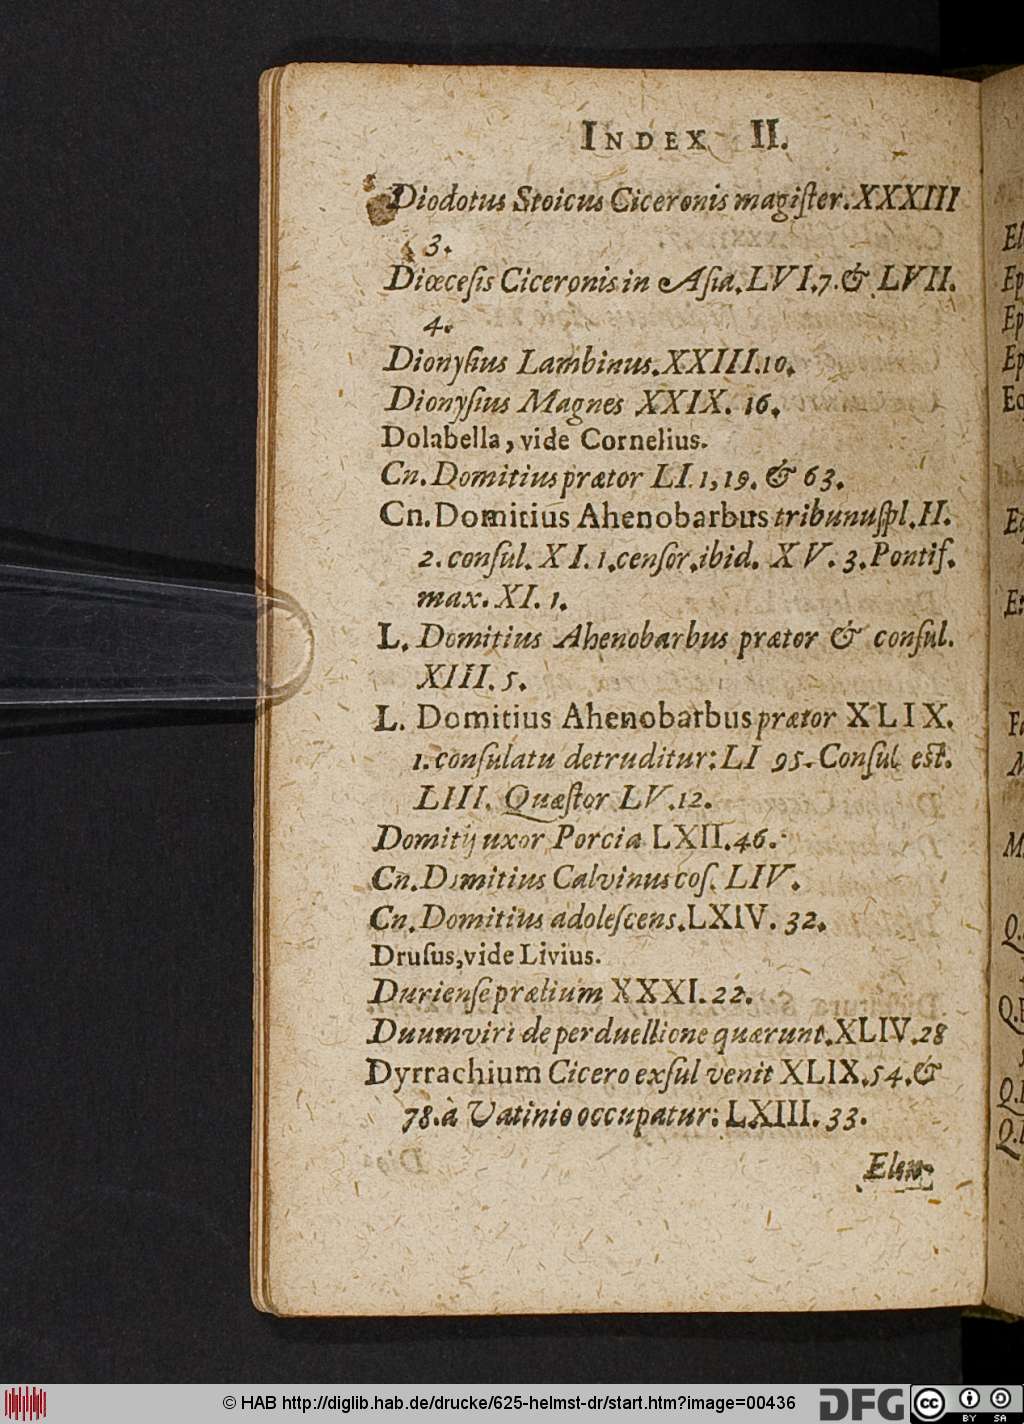 INDEX II.
Diodotus Stoicus Ciceronis magiſter. XXXIII
3.
Diœceſis Ciceronis in Aſia. LVI. 7. & LVII.
4.
Dionyſius Lambinus. XXIII. 10.
Dionyſius Magnes XXIX. 16.
Dolabella, vide Cornelius.
Cn. Domitius prætor LI. 1, 19. & 63.
Cn. Domitius Ahenobarbus tribunuſpl. II.
2. conſul. XI. 1. cenſor. ibid. XV. 3. Pontif.
max. XI. 1.
L. Domitius Ahenobarbus prætor & conſul.
XIII. 5.
L. Domitius Ahenobarbus prætor XLIX.
1. conſulatu detruditur: LI 95. Conſul eſt.
LIII. Quæſtor LV. 12.
Domitij uxor Porcia LXII. 46.
Cn. Domitius Calvinus coſ. LIV.
Cn. Domitius adoleſcens. LXIV. 32.
Druſus, vide Livius.
Durienſe prælium XXXI. 22.
Duumviri de perduellione quærunt. XLIV. 28
Dyrrachium Cicero exſul venit XLIX. 54. &
78. à Vatinio occupatur: LXIII. 33.
Elen-
© HAB http://diglib.hab.de/drucke/625-helmst-dr/start.htm?image=00436
DFG
cc
BY SA